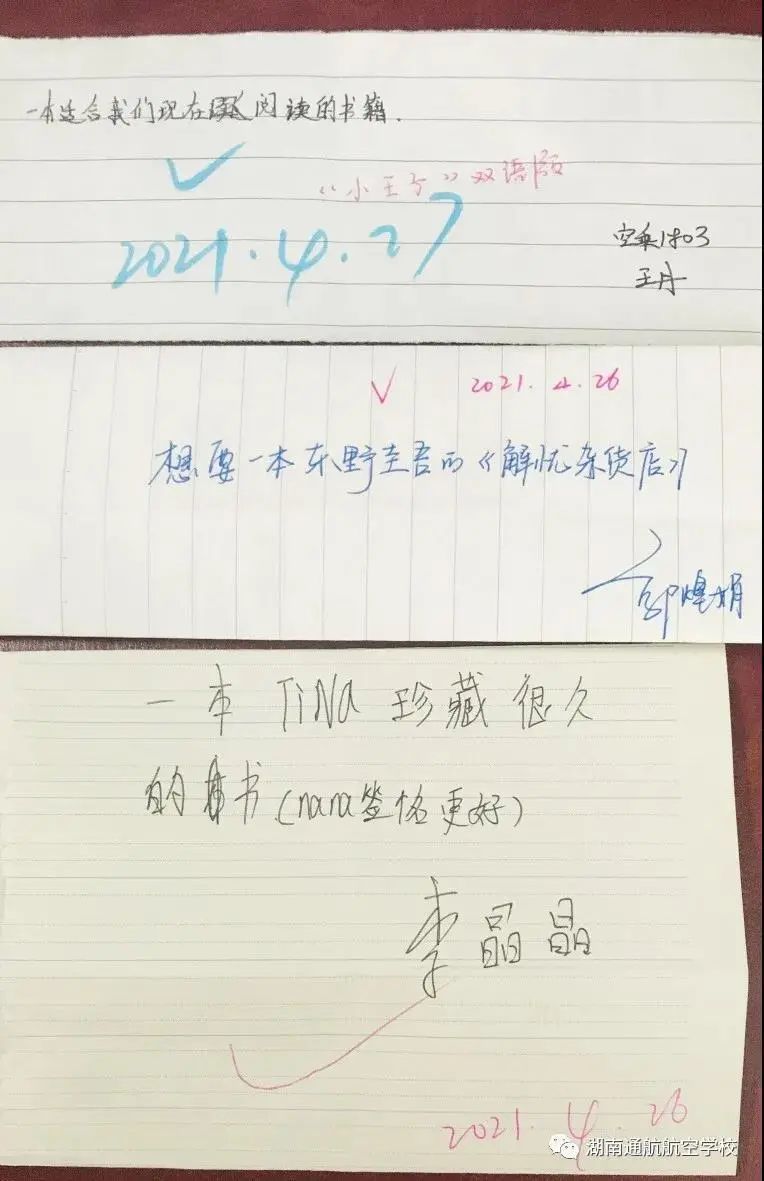 一本适合我们现在阅读的书籍.
✓
《小王子》双语版
2021.4.27
空乘1803
王丹
✓ 2021.4.26
想要一本东野圭吾的《解忧杂货店》
邬娟
一本 TiNa 珍藏很久
的书(nana签名更好)
李晶晶
✓
2021.4.26
湖南通航航空学校